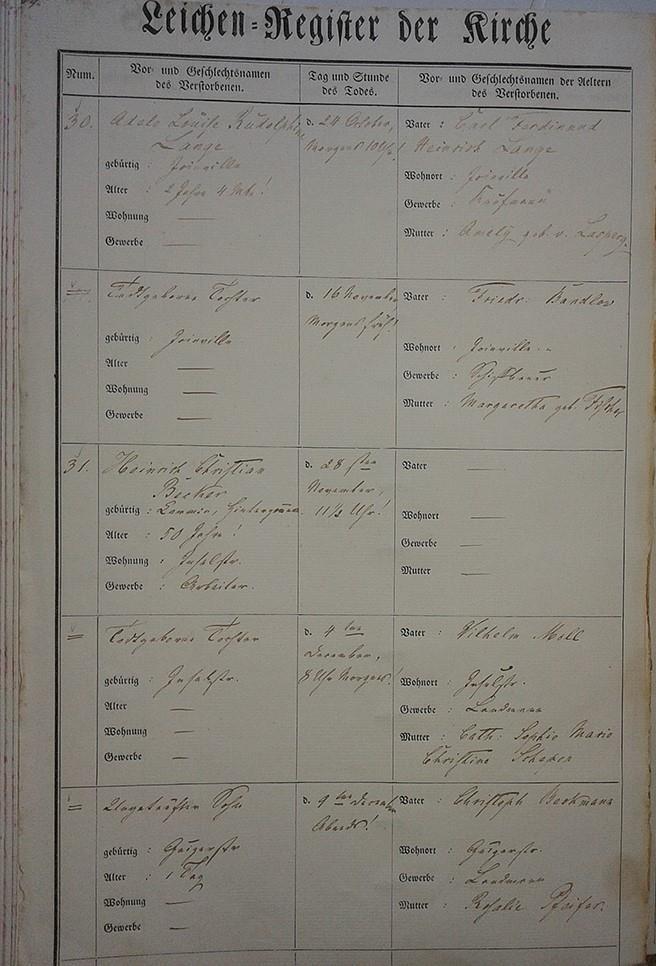 Leichen-Register der Kirche
Num.
Vor- und Geschlechtsnamen
des Verstorbenen.
Tag und Stunde
des Todes.
Vor- und Geschlechtsnamen der Aeltern
des Verstorbenen.
30.
Adele Louise Rudolphine
Lange
gebürtig : Joinville
Alter : 2 Jahre 4 Mte!
Wohnung —
Gewerbe —
d. 24 October,
Morgens 10 Uhr!
Vater : Carl Ferdinand
Heinrich Lange
Wohnort : Joinville
Gewerbe : Kaufmann
Mutter : Amely geb. v. Lasperg.
Todtgeborne Tochter
gebürtig : Joinville
Alter —
Wohnung —
Gewerbe —
d. 16 November
Morgens früh!
Vater : Friedr. Bandlow
Wohnort : Joinville
Gewerbe : Schiffbauer
Mutter : Margaretha geb. Fischer
31.
Heinrich Christian
Becker
gebürtig : Cammin, Hinterpommern
Alter : 50 Jahre!
Wohnung : Inselstr.
Gewerbe : Arbeiter.
d. 28 sten
November,
11½ Uhr!
Vater —
Wohnort —
Gewerbe —
Mutter —
Todtgeborne Tochter
gebürtig : Inselstr.
Alter —
Wohnung —
Gewerbe —
d. 4 ten
December,
8 Uhr Morgens!
Vater : Wilhelm Moll
Wohnort : Inselstr.
Gewerbe : Landmann
Mutter : Cath. Sophie Marie
Christine
Ungetaufter Sohn
gebürtig : Guigerstr
Alter : 1 Tag
Wohnung —
Gewerbe —
d. 9 ten December
Abends!
Vater : Christoph Beckmann
Wohnort : Guigerstr.
Gewerbe : Landmann
Mutter : Rosalie Pfeifer.